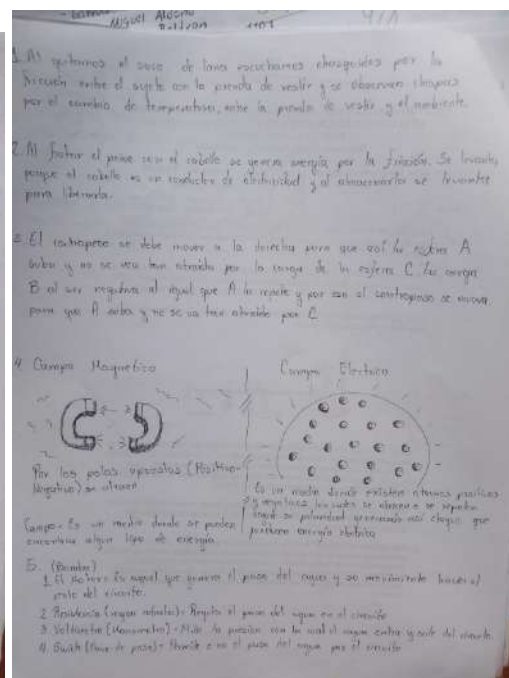 Miguel
1101
1. Al quitarnos el saco de lana escuchamos chasquidos por la
fricción entre el sujeto con la prenda de vestir y se observan chispas
por el cambio de temperatura, entre la prenda de vestir y el ambiente.
2. Al frotar el peine con el cabello se genera energía por la fricción. Se levanta,
porque el cabello es un conductor de electricidad y al almacenarla se levanta
para liberarla.
3. El contrapeso se debe mover a la derecha para que así la esfera A
suba y no se vea tan atraída por la carga de la esfera C. La carga
B al ser negativa al igual que A la repele y por eso el contrapeso se mueve
para que A suba y no se vea tan atraída por C
4. Campo Magnético
Campo Electrico
Por los polos opuestos (Positivo-
Negativo) se atraen
Es un medio donde existen atomos positivos
y negativos los cuales se atraen o se repelen
según su polaridad generando así choque que
producen energía electrica
Campo: Es un medio donde se pueden
encontrar algun tipo de energía.
5. (Bomba)
1. El Motor = Es aquel que genera el paso del agua y su movimiento hacia el
resto del circuito.
2. Resistencia = Regula el paso del agua en el circuito
3. Voltimetro (Manometro) = Mide la presión con la cual el agua entra y sale del circuito.
4. Switch (llave de paso) = Permite o no el paso del agua por el circuito